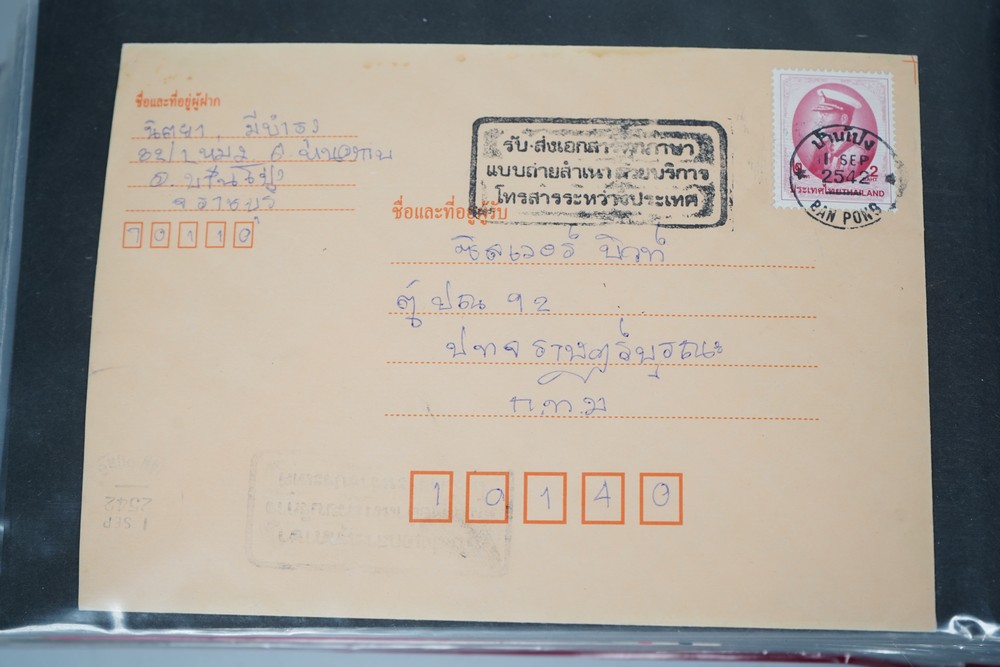 ชื่อและที่อยู่ผู้ฝาก
นิตยา มีบำรุง
อ.บ้านโป่ง
จ.ราชบุรี
70110
รับ-ส่งเอกสารทุกภาษา
แบบถ่ายสำเนา ด้วยบริการ
โทรสารระหว่างประเทศ
บ้านโป่ง
1 SEP
2542
BAN PONG
2
ประเทศไทย THAILAND
ชื่อและที่อยู่ผู้รับ
ซิลเวอร์
ตู้ ปณ ๑๒
ปทจ ราษฎร์บูรณะ
ก.ท.ม
10140
2542
1 SEP